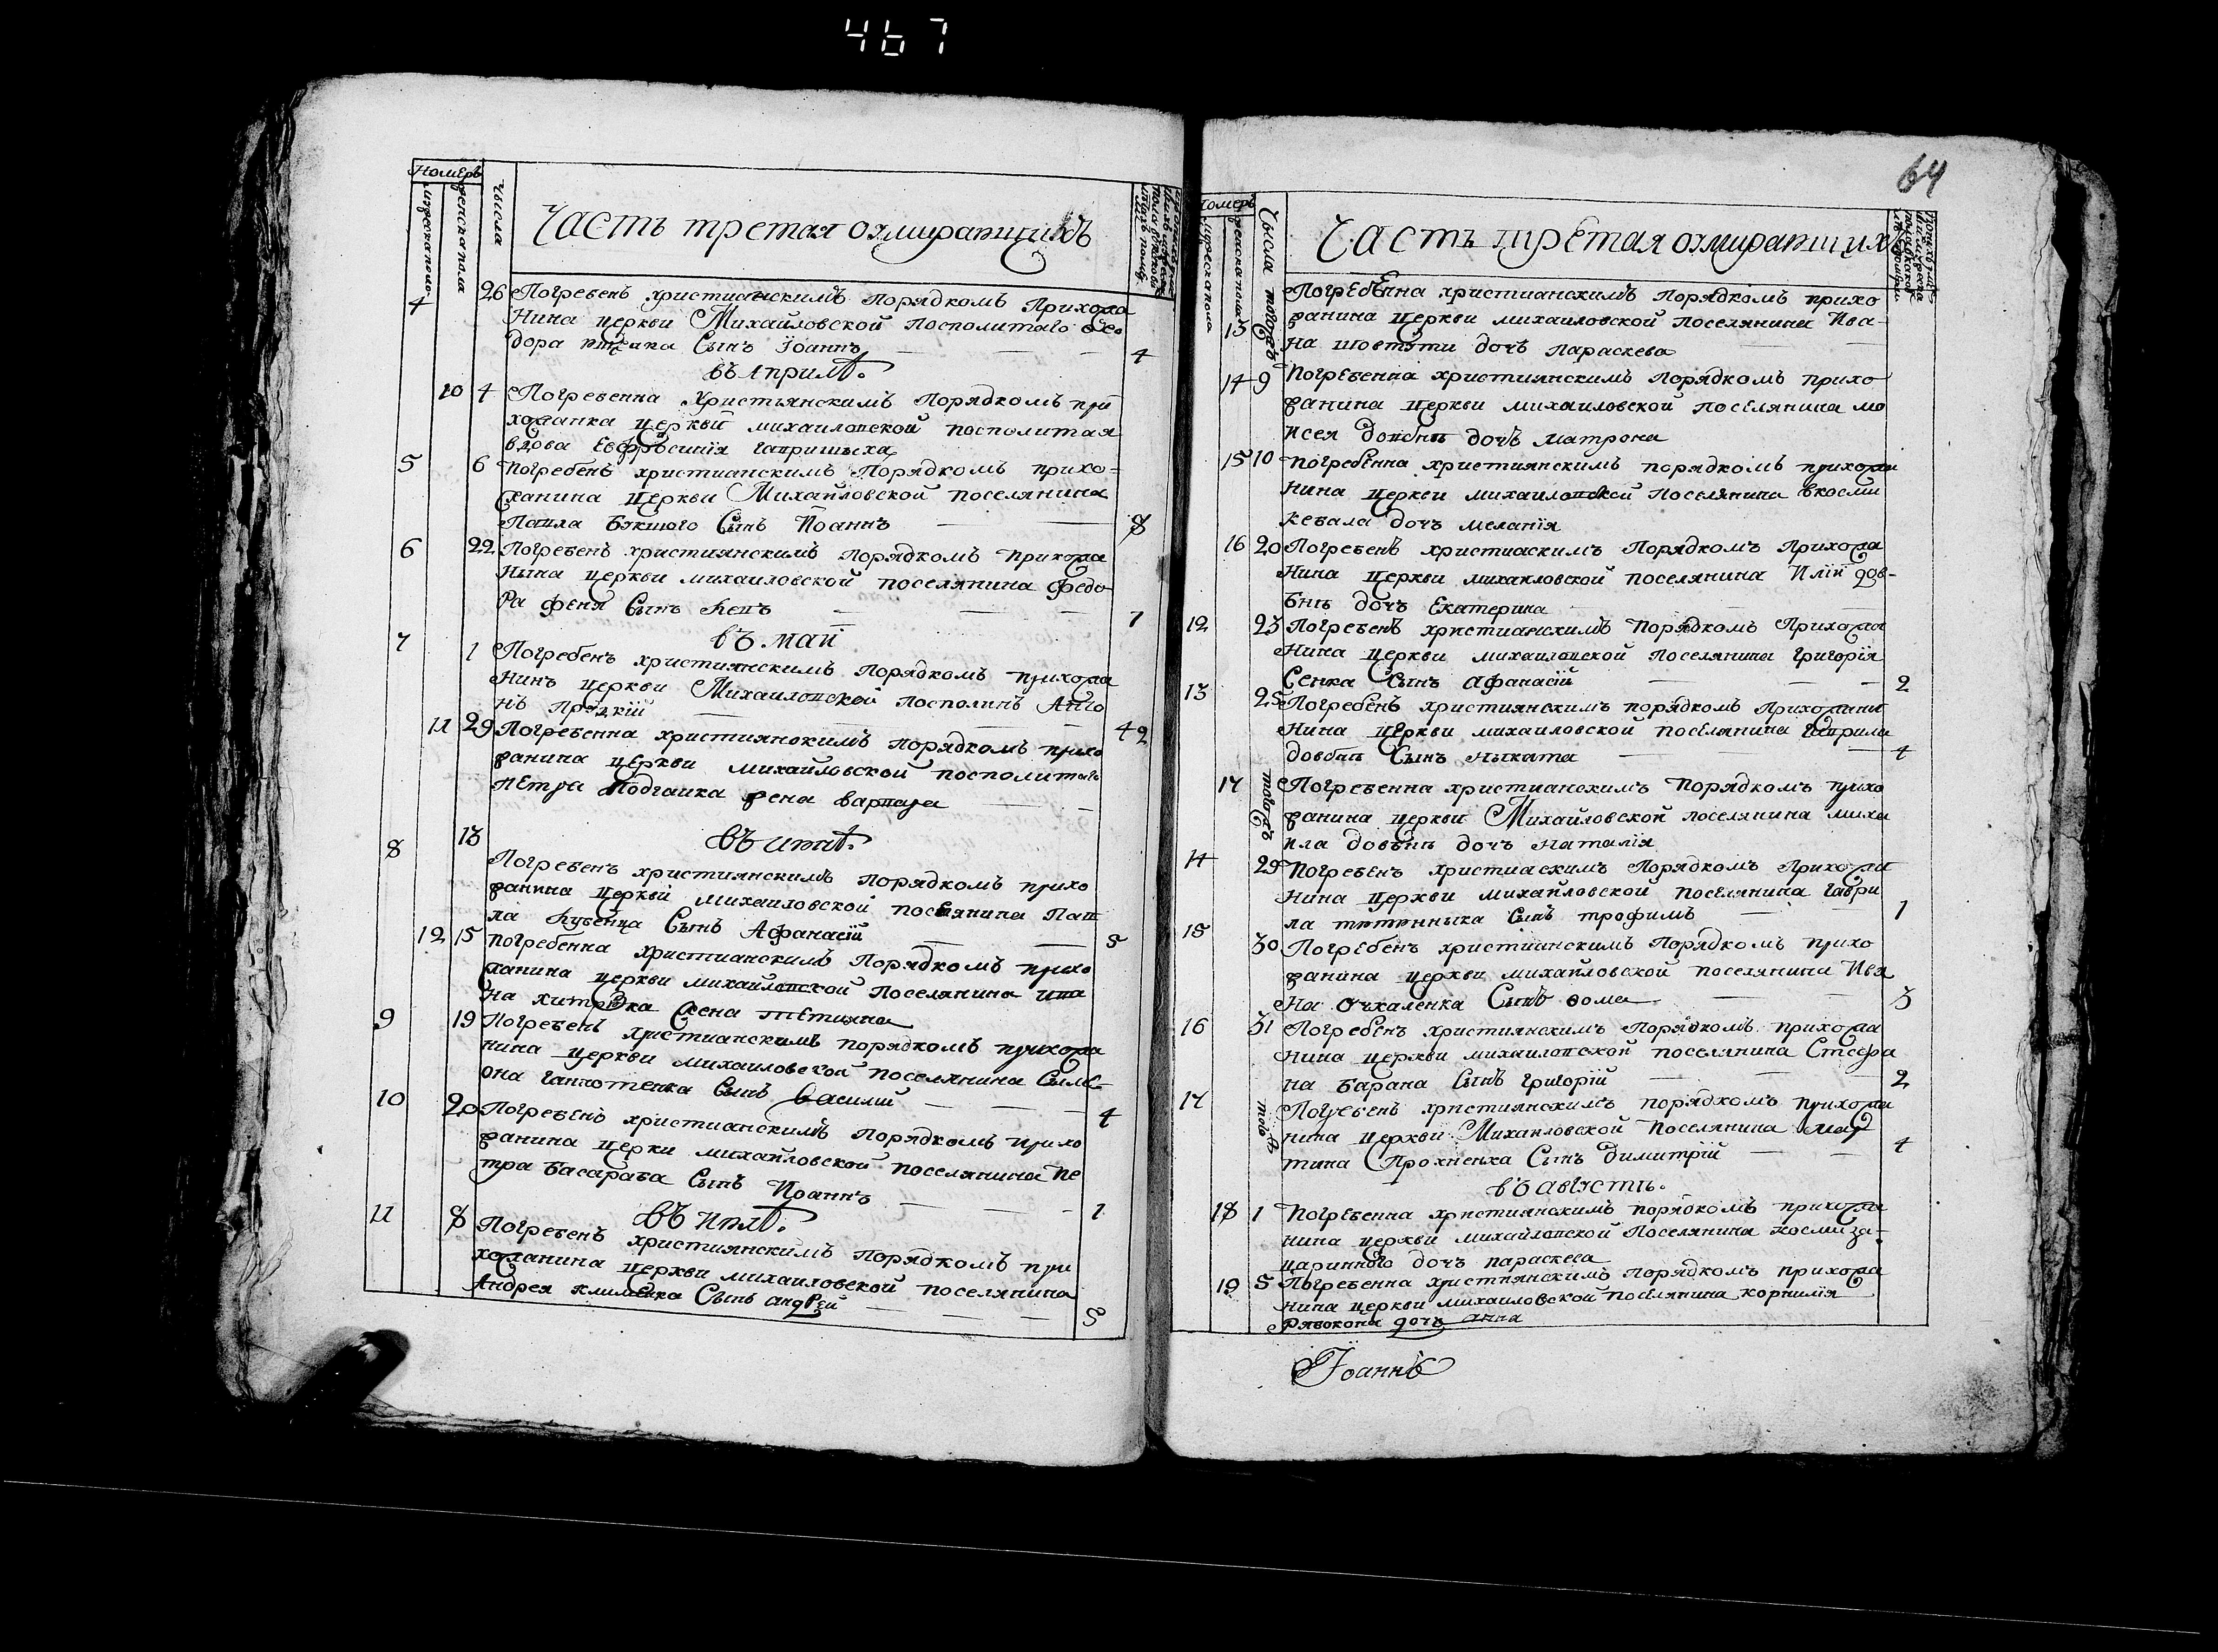 467
Номеръ
мужеска полу
женска пола
Числа
Часть третая оумирающихъ
4 26 Погребенъ христианскимъ порядкомъ Прихожа
нина церкви Михайловской посполитаго Ѳео
дора сынъ Іоаннъ 4
въ Априлѣ.
10 4 Погребенна Христьянскимъ порядкомъ при
хожанка церкви михаиловской посполитая
вдова Евфросинія
5 6 Погребенъ христианскимъ порядкомъ прихо-
жанина церкви Михайловской поселянина
Павла Сынъ Иоаннъ 8
6 22 Погребенъ християнскимъ порядкомъ прихожа
нина церкви михаиловской поселянина Федо
ра феня Сынъ 1
въ маи
7 1 Погребенъ християнскимъ порядкомъ прихожа
нинъ церкви Михаиловской посполинъ Анто
нъ 42
11 29 Погребенна християнскимъ порядкомъ прихо
жанина церкви михайловской посполитаго
Петра Подгаика жена варвара
въ июнѣ.
8 13 Погребенъ християнскимъ порядкомъ прихо
жанина церкви михаиловской поселянина Пав
ла Кубенца Сынъ Афанасій 5
12 15 Погребенна христианскимъ порядкомъ прихо
жанина церкви михаиловской поселянина ива
на жена тетияна
9 19 Погребенъ христианскимъ порядкомъ прихожа
нина церкви михаиловской поселянина Симе-
она Сынъ Василий 4
10 20 Погребенъ христианскимъ порядкомъ прихо
жанина церкви михайловской поселянина Пе
тра Басараба Сынъ Иоаннъ 1
въ июлѣ.
11 8 Погребенъ християнскимъ порядкомъ при
хожанина церкви михаиловской поселянина
Андрея клименка Сынъ андрей 5
64
Номеръ
мужеска пола
женска полу
Числа
Часть третая оумирающихъ
13 тогожъ Погребенна христианскимъ порядкомъ прихо
жанина церкви михаиловской поселянина Ива-
на шовтути дочъ параскева
14 9 Погребенна християнскимъ порядкомъ прихо
жанина церкви михаиловской поселянина мо
исея довбнѣ дочъ матрона
15 10 Погребенна християнскимъ порядкомъ прихожа
нина церкви михаиловской поселянина
кевала дочъ меланія
16 20 Погребенъ христиаскимъ порядкомъ Прихожа
нина церкви михаиловской поселянина Иліи дов-
бнѣ дочъ Екатерина
12 23 Погребенъ христианскимъ порядкомъ Прихожа
нина церкви михаиловской поселянина григорія
Сенка Сынъ Афанасій 2
13 25 Погребенъ християнскимъ порядкомъ Прихожани
нина церкви михаиловской поселянина гаврила
довбнѣ Сынъ никита 4
17 тогожъ Погребенна христианскимъ порядкомъ прихо
жанина церкви Михайловской поселянина миха
ила довбнѣ дочъ наталія
14 29 Погребенъ христиаскимъ порядкомъ Прихожа
нина церкви михайловской поселянина гаври
ла тютюнныка Сынъ трофимъ 1
15 30 Погребенъ христиинскимъ порядкомъ прихо
жанина церкви михайловской поселянина Ива
на Очкаленка Сынъ ѳома 3
16 31 Погребенъ християнскимъ порядкомъ прихожа
нина церкви михаиловской поселянина Стефа
на барана Сынъ григорій 2
17 Погребенъ християнскимъ порядкомъ прихожа
нина церкви Михаиловской поселянина мар
тина Прохненка Сынъ димитрій 4
въ августѣ.
18 1 Погребенна християнскимъ порядкомъ прихожа
нина церкви михаиловской поселянина космиза-
царинного дочъ параскева
19 5 Погребенна християнскимъ порядкомъ прихожа
нина церкви михаиловской поселянина корнилія
Рябокона дочъ анна
Іоаннъ